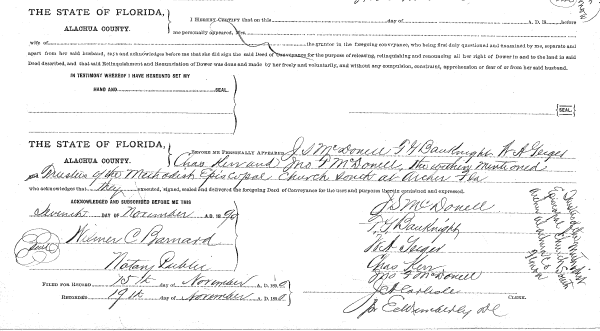 THE STATE OF FLORIDA,
ALACHUA COUNTY.
I HEREBY CERTIFY that on this day of A. D. 18 before
me personally appeared, Mrs.
wife of the grantor in the foregoing conveyance, who being first duly questioned and examined by me, separate and
apart from her said husband, says and acknowledges before me that she did sign the said Deed of Conveyance for the purpose of releasing, relinquishing and renouncing all her right of Dower in and to the land in said
Deed described, and that said Relinquishment and Renunciation of Dower was done and made by her freely and voluntarily, and without any compulsion, constraint, apprehension or fear of or from her said husband.
IN TESTIMONY WHEREOF I HAVE HEREUNTO SET MY
HAND AND SEAL.
SEAL
THE STATE OF FLORIDA,
ALACHUA COUNTY.
BEFORE ME PERSONALLY APPEARED J. S. McDonell T. G. Bauknight W. A. Geiger
Chas Kerr and Jno F McDonell, the within mentioned
Trustees of the Methodist Episcopal Church South at Archer Fla
who acknowledges that they executed, signed, sealed and delivered the foregoing Deed of Conveyance for the uses and purposes therein contained and expressed.
ACKNOWLEDGED AND SUBSCRIBED BEFORE ME THIS
Seventh DAY OF November A. D. 1890
Wilmer C Barnard
Seal
Notary Public
J S McDonell
T. G. Bauknight
W. A. Geiger
Chas Kerr
Jno F. McDonell
FILED FOR RECORD 15th day of November A. D. 1890
RECORDED 19th day of November A. D. 1890
CLERK.
pr E. C. Wimberly DC
Episcopal Church South